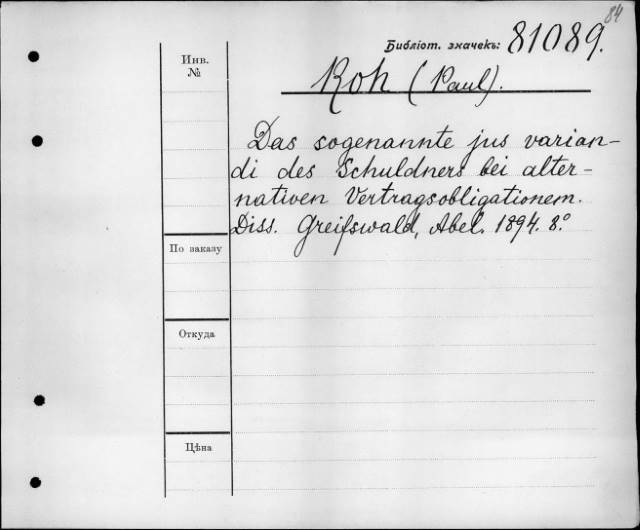 84
Библіот. значекъ: 81089.
Инв.
№
Roh (Paul).
Das sogenannte jus varian-
di des Schuldners bei alter-
nativen Vertragsobligationem.
Diss. Greifswald, Abel. 1894. 8.°
По заказу
Откуда
Цѣна